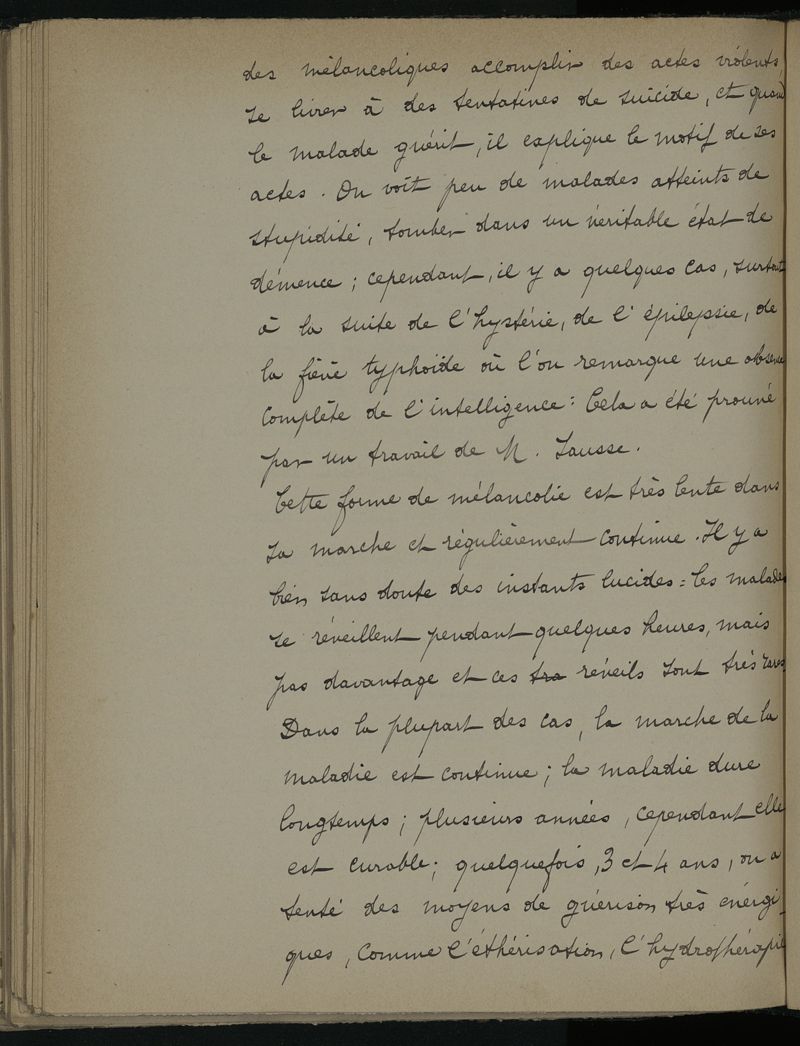 des mélancoliques accomplir des actes violents,
se livrer à des tentatives de suicide, et quand
le malade guérit, il explique le motif de ses
actes. On voit peu de malades atteints de
stupidité, tomber dans un véritable état de
démence ; cependant, il y a quelques cas, surtout
à la suite de l'hystérie, de l'épilepsie, de
la fièvre typhoïde où l'on remarque une absence
complète de l'intelligence : Cela a été prouvé
par un travail de M. Sausse.
Cette forme de mélancolie est très lente dans
sa marche et régulièrement continue. Il y a
bien sans doute des instants lucides = les malades
se réveillent pendant quelques heures, mais
pas davantage et ces tra réveils sont très rares.
Dans la plupart des cas, la marche de la
maladie est continue ; la maladie dure
longtemps ; plusieurs années, cependant elle
est curable ; quelquefois, 3 et 4 ans, on a
tenté des moyens de guérison très énergi-
ques, comme l'éthérisation, l'hydrothérapie